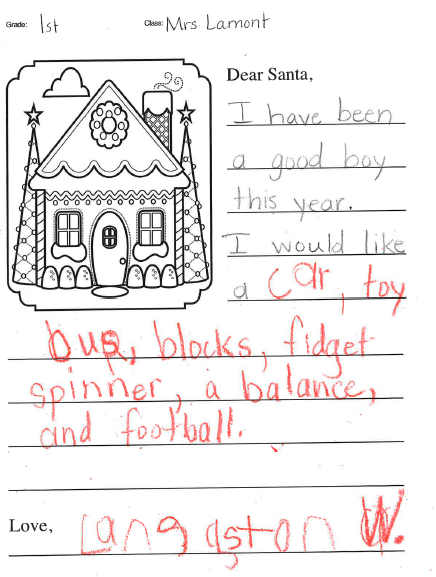 Grade: 1st Class: Mrs Lamont
Dear Santa,
I have been
a good boy
this year.
I would like
a car, toy
bus, blocks, fidget
spinner, a balance,
and football.
Love, Langston W.